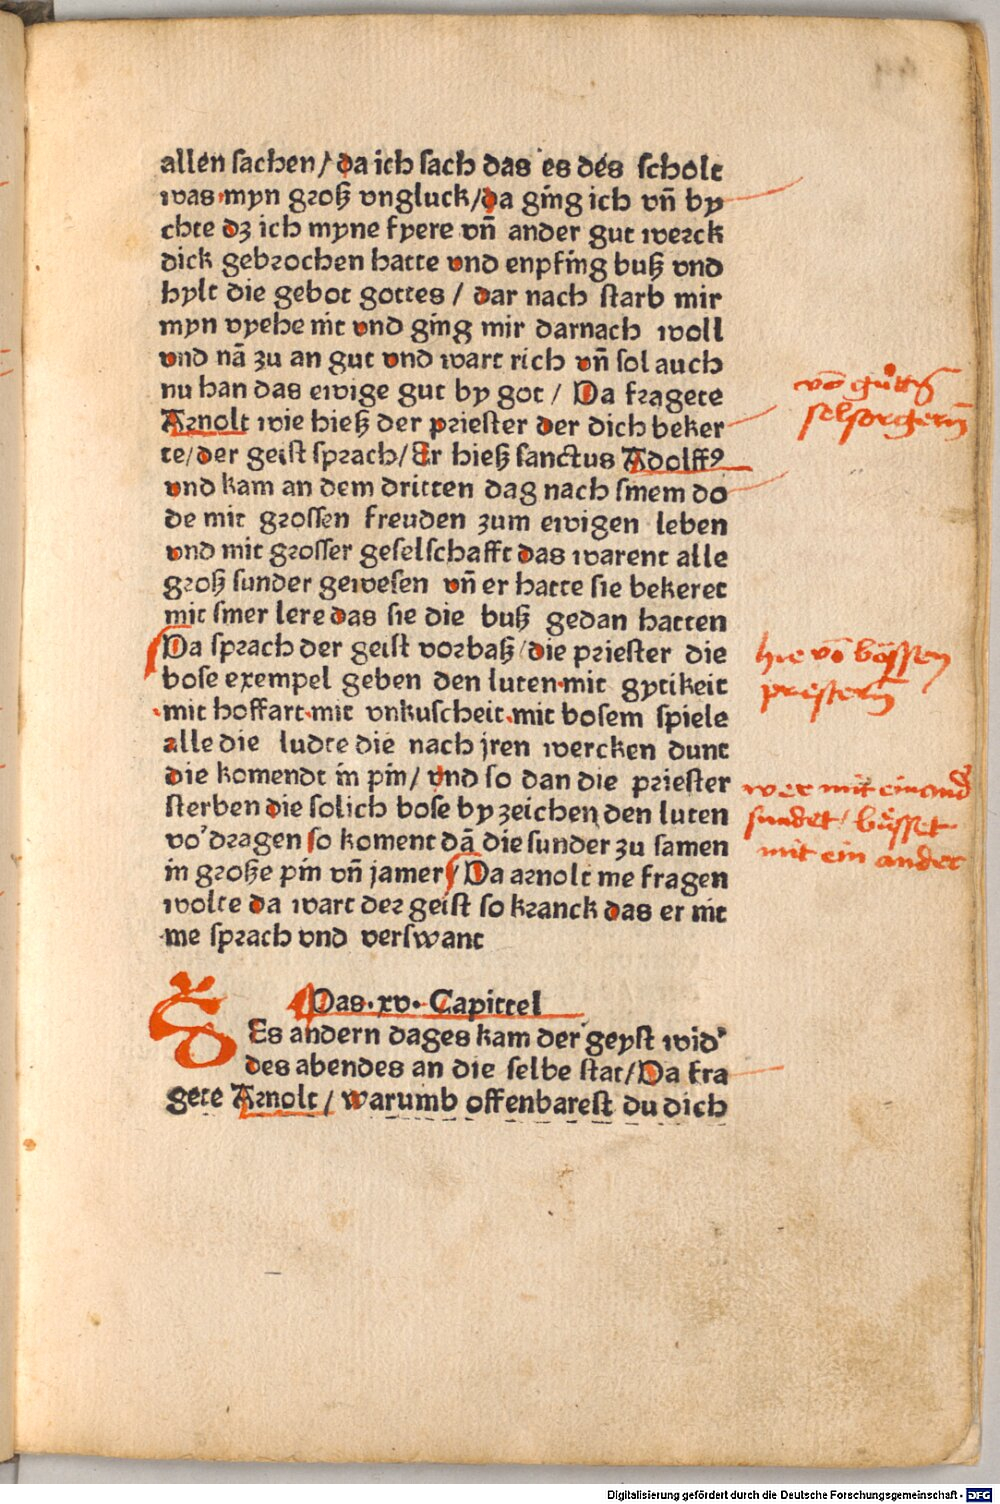 allen sachen / da ich sach das es des scholt
was myn groß vngluck / da ging ich vn̄ by
chte dz ich myne fyere vn̄ ander gut werck
dick gebrochen hatte vnd enpfing buß vnd
hylt die gebot gottes / dar nach starb mir
myn vyehe nit vnd ging mir darnach woll
vnd nā zu an gut vnd wart rich vn̄ sol auch
nu han das ewige gut by got / Da fragete
Arnolt wie hieß der priester der dich beker
te / der geist sprach / Er hieß sanctus Adolffꝰ
vnd kam an dem dritten dag nach sinem do
de mit grossen freuden zum ewigen leben
vnd mit grosser geselschafft das warent alle
groß sunder gewesen vn̄ er hatte sie bekeret
mit siner lere das sie die buß gedan hatten
Da sprach der geist vorbaß / die priester die
bose exempel geben den luten·mit gytikeit
·mit hoffart·mit vnkuscheit·mit bosem spiele
alle die ludte die nach jren wercken dunt
die koment in pin / vnd so dan die priester
sterben die solich bose by zeichen den luten
vo’dragen so koment dā die sunder zu samen
in große pin vn̄ jamer / Da arnolt me fragen
wolte da wart der geist so kranck das er nit
me sprach vnd verswant
Das·xv·Capittel
DEs andern dages kam der geyst wid’
des abendes an die selbe stat / Da fra
gete Arnolt / warumb offenbarest du dich
vō gůttē
selsorgern̄
hie vō bössen
prestern̄
wer mit einand’
sundet / büsset
mit ein ander
Digitalisierung gefördert durch die Deutsche Forschungsgemeinschaft - DFG